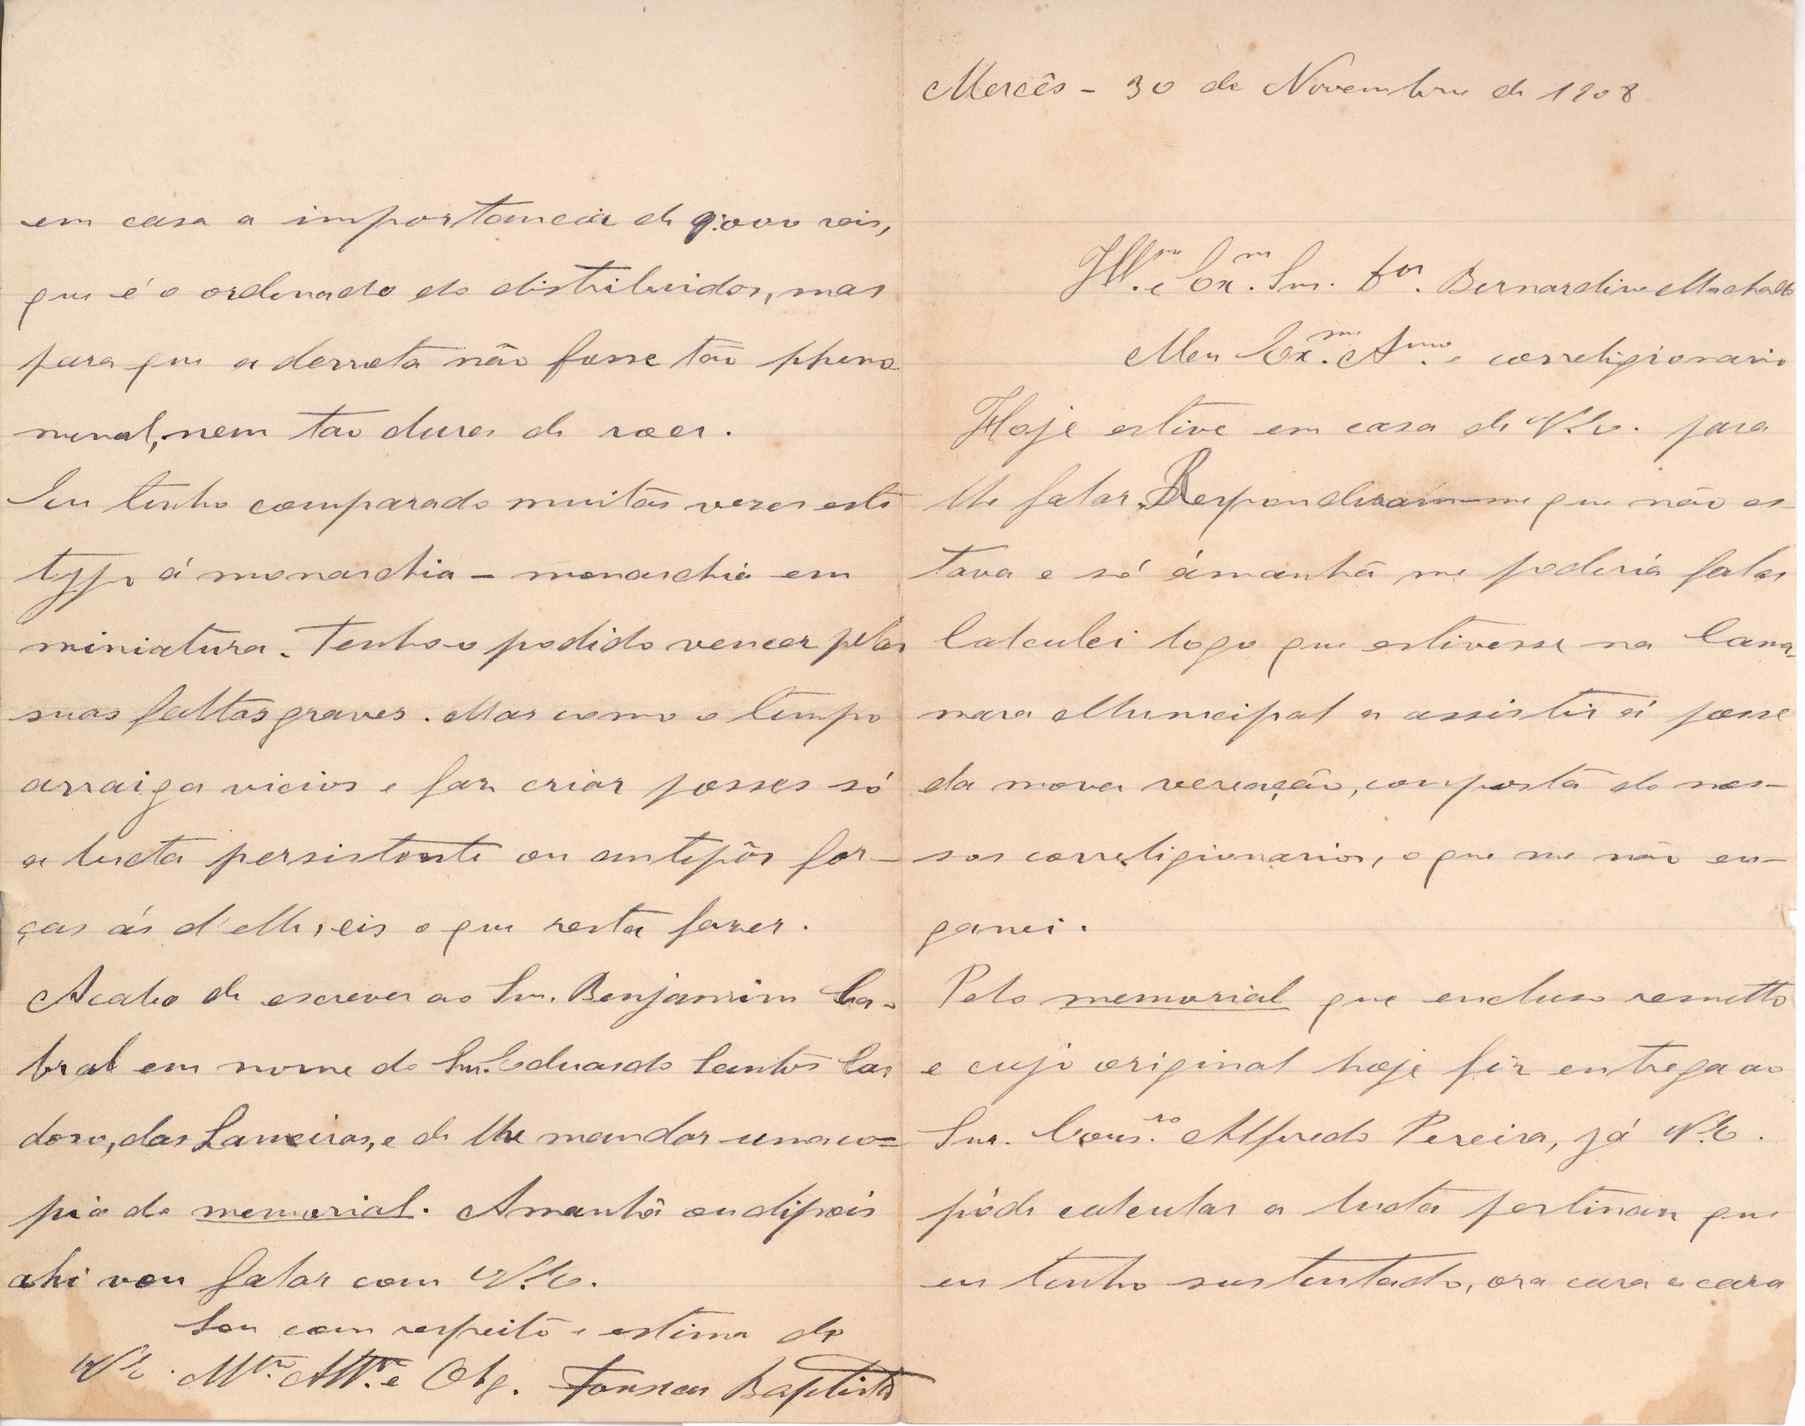 Mercês - 30 de Novembro de 1908
Ill.mo e Ex.mo Snr. Dor. Bernardino Machado
Meu Ex.mo Amo. e correligionario
Hoje estive em casa de V. Ex. para
lhe falar. Responderam-me que não es-
tava e só ámanhã me poderia falar
Calculei logo que estivesse na Cama-
mara Municipal a assistir á posse
da nova vereação, composta de nos-
sos correligionarios, o que me não en-
ganei.
Pelo memorial que incluso remetto
e cujo original hoje fiz entrega ao
Snr. Cons.ro Alfredo Pereira, já V. Ex.
póde calcular a lucta pertinaz que
eu tenho sustentado, ora cara a cara
em casa a importancia de 9:000 reis,
que é o ordenado do distribuidor, mas
para que a derrota não fosse tão pheno
menal, nem tão dura de roer.
Eu tenho comparado muitas vezes este
typo á monarchia - monarchia em
miniatura. Tenho-o podido vencer pelas
suas faltas graves. Mas como o tempo
arraiga vicios e faz criar posses só
a lucta persistente ou antepôr for-
ças ás d'elle, eis o que resta fazer.
Acabo de escrever ao Snr. Benjamim Ca-
bral em nome do Snr. Eduardo Santos Car
doso, das Lameiras, e de lhe mandar uma co-
pia do memorial. Amanhã ou depois
ahi vou falar com V. Ex.
Sou com respeito e estima de
V. Ex. Mto. Atto. e Obg. Fonseca Baptista